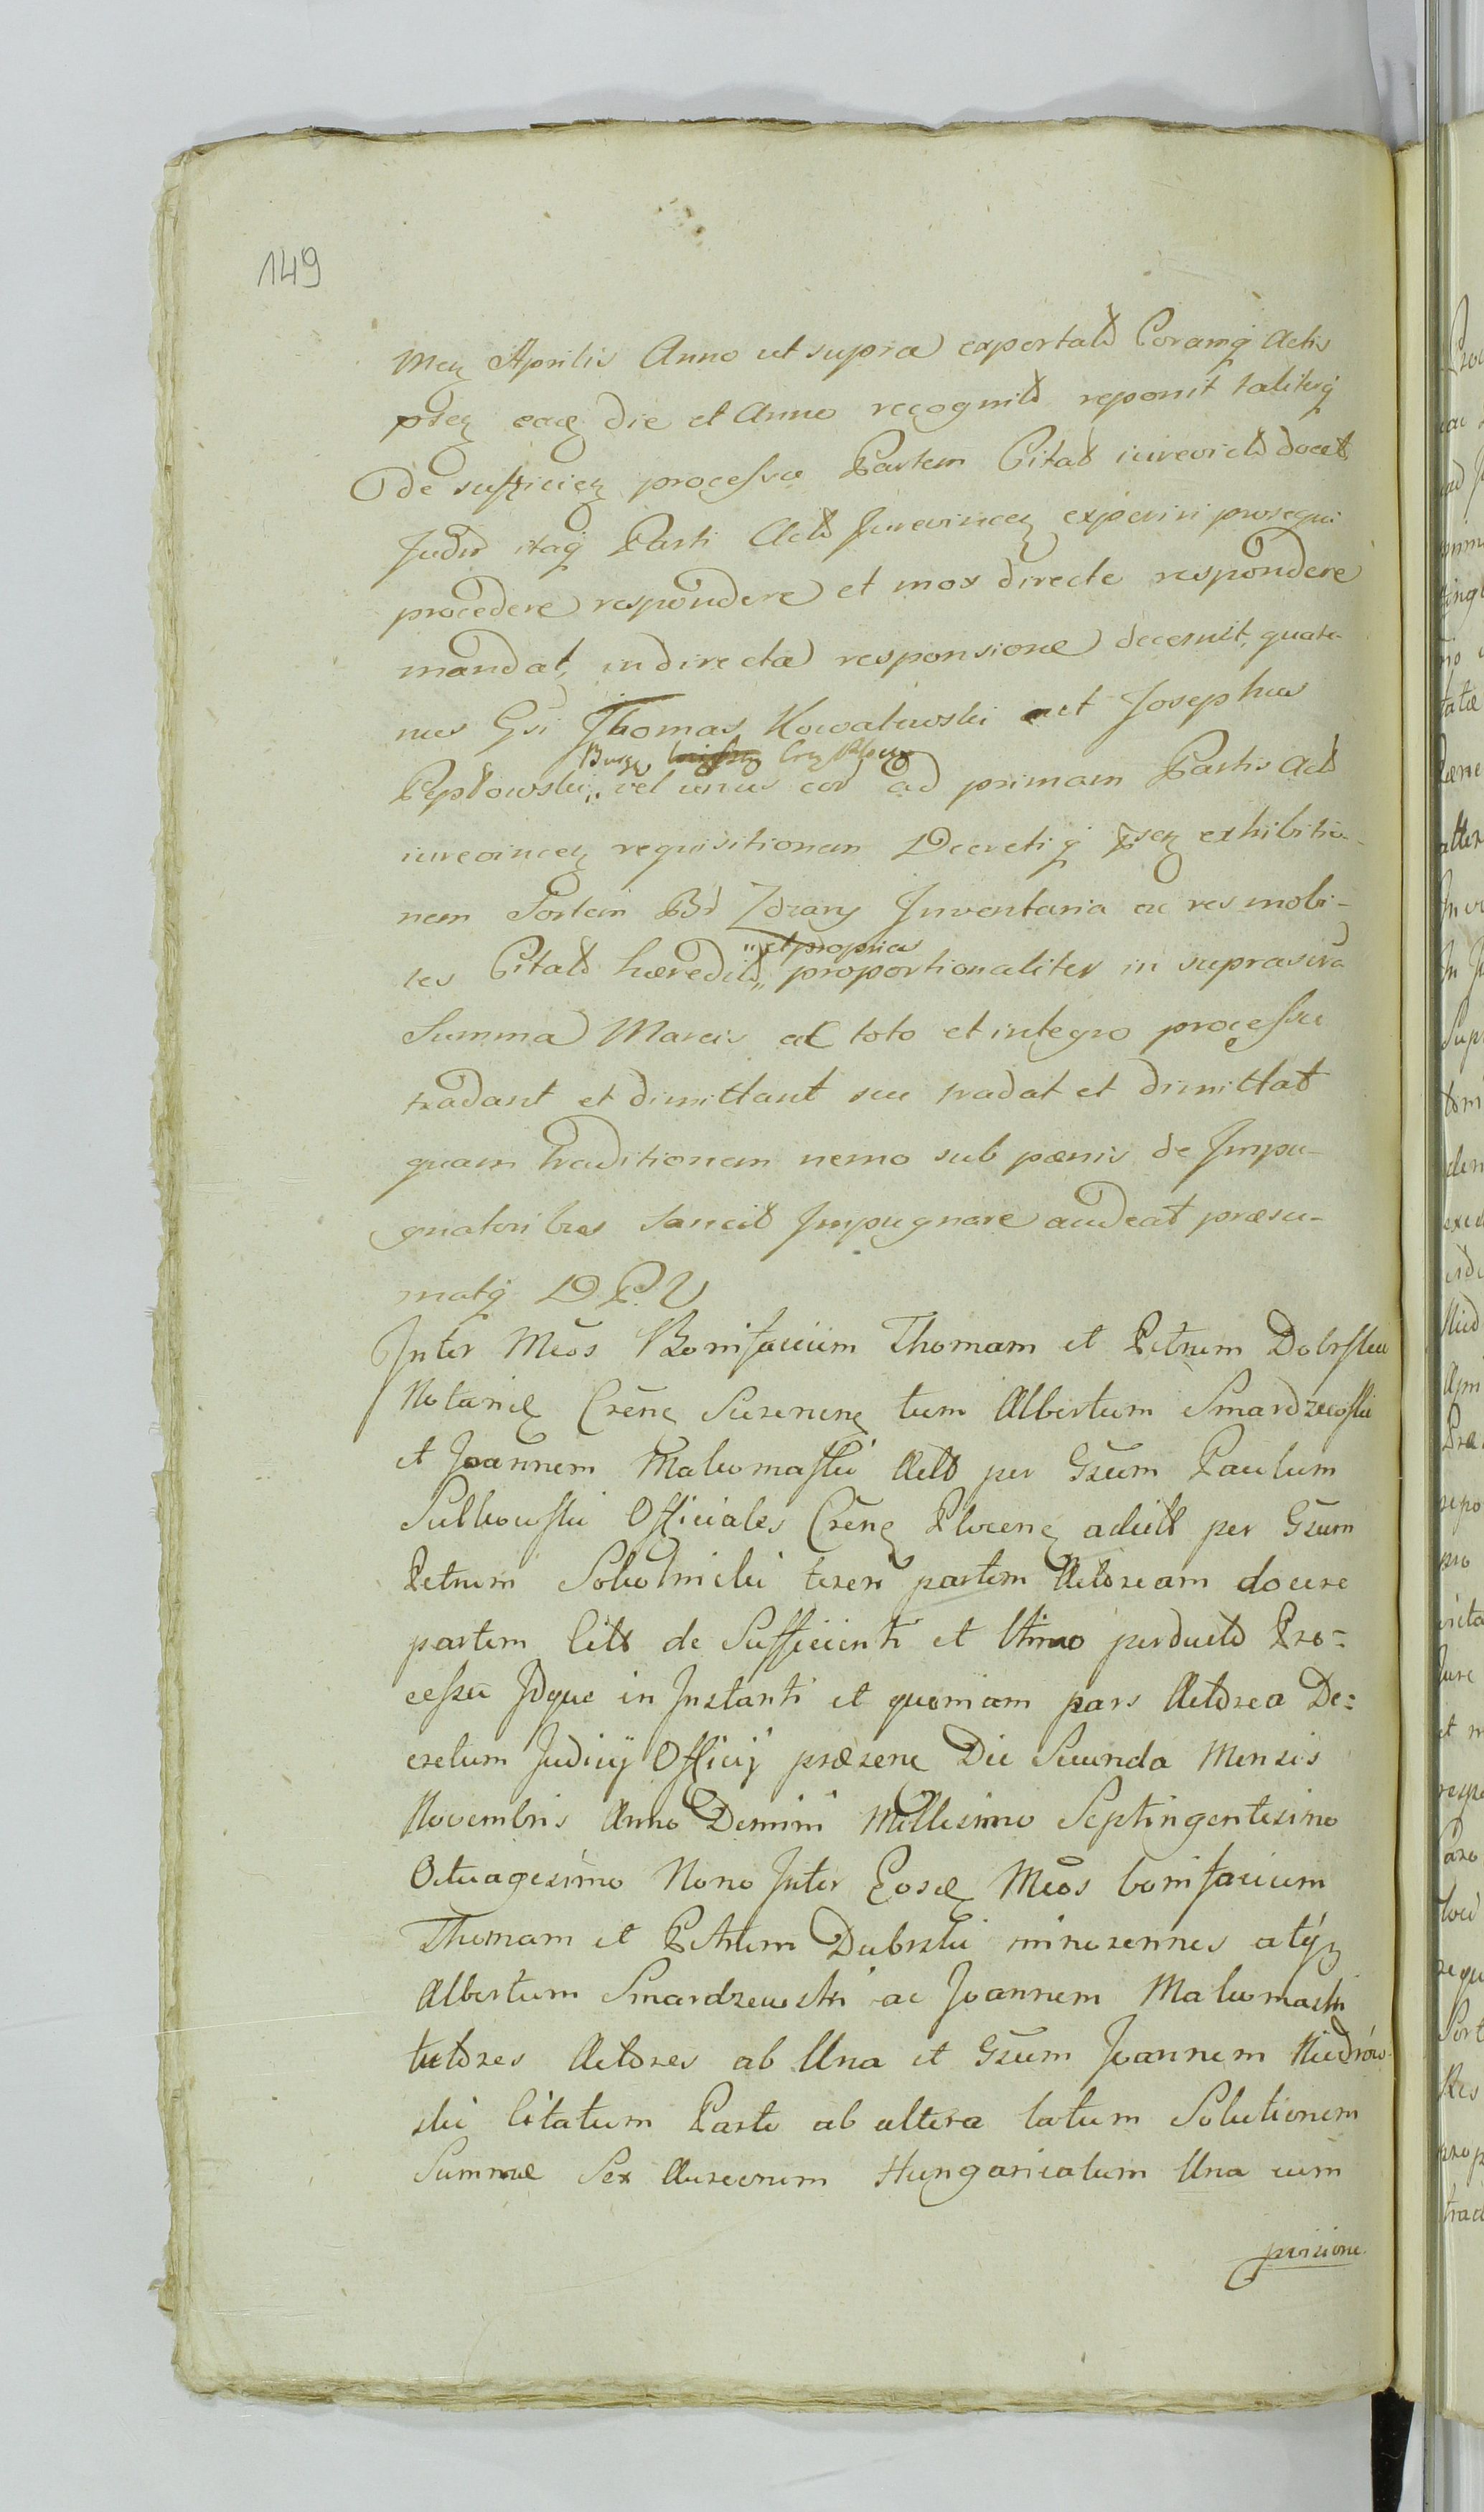 149
Men Aprilis Anno ut supra exportat Coramq Actis
pten ead die et Anno recognit reponit taliterq
de sufficien processu Partem Citat iurevict docet
Judm itaq Parti Act Jurevincen experiri prosequi
procedere respondere et mox directe respondere
mandat, indirecta responsione decernit, quate-
nus Gsi Thomas Kowalewski aut Josephus
Burg Crz Ploc
Pepłowski vel unus eor ad primam Partis Act
iurevincen requisitionem Decretiq psen exhibitio-
nem Sortem Bo Zdrary Inventaria ac res mobi-
et proprias
les Citat hæredit proportionaliter in suprascra
Summa Marcis ac toto et integro processu
tradant et dimittant seu tradat et dimittat
quam traditionem nemo sub pænis de Impu-
gnatoribus Sancit Impugnare audeat præsu-
matq D P. V
Inter Mcos Bonifacium Thomam et Petrum Dobrskie
Notarid Crēne Surenene tum Albertum Smardzewski
et Joannem Makomaski Act per Gsum Paulum
Sulkowski Officiales Crēne Plocene acticit per Gsum
Petrum Sokolnicki teren partem Actoream docere
partem Cit de Sufficienti et Ultimo perducto Pro-
cessu Idque in Instanti et quoniam pars Actorea De-
cretum Judicij Officij præsene Die Secunda Mensis
Novembris Anno Domini Millesimo Septingentesimo
Octuagesimo Nono Inter Eosd Mcos bonifacium
Thomam et Petrum Dubrski minorennes atq
Albertum Smardzewski ac Joannem Makomaski
tutores Actores ab Una et Gsum Joannem Niedrów-
ski Citatum Parte ab altera latum Solutionem
Summæ Sex Aureorum Hungaricalum Una cum